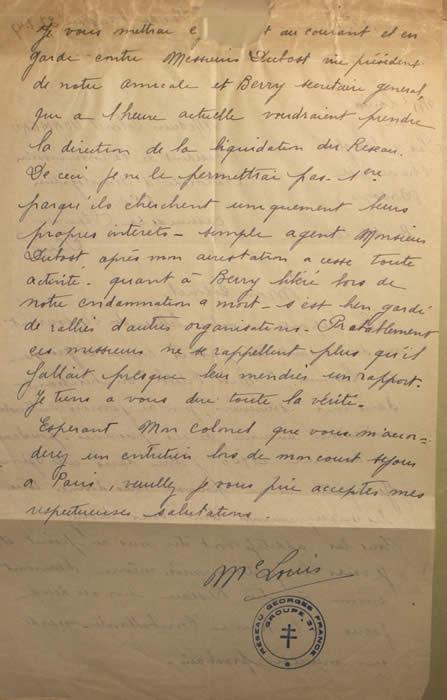 Je vous mettrai au courant et en
garde contre Messieurs Dubost vice président
de notre amicale et Berry secretaire general,
qui a l'heure actuelle voudraient prendre
la direction de la liquidation du Reseau.
De ceci je ne le permettrai pas - 1ere
parqu'ils cherchent uniquement leurs
propres intérêts - simple agent Monsieur
Dubost après mon arrestation a cesse toute
activité - quant à Berry libéré lors de
notre condamnation a mort - s'est bien gardé
de rallies d'autres organisations - Probablement
ces messieurs ne se rappellent plus qu'il
fallait presque leur mendier un rapport.
Je tiens a vous dire toute la vérité -
Esperant Mon Colonel que vous m'accor-
derez un entretien lors de mon court sejour
a Paris, veuillez je vous prie acceptes mes
respectueuses salutations.
Me Louis
RESEAU GEORGES FRANCE
GROUPE 31